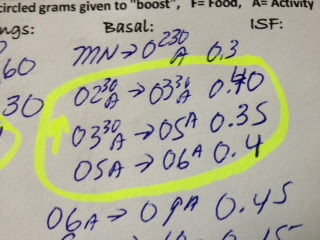 circled grams given to "boost", F= Food, A= Activity
ngs: Basal: ISF:
60 MN → 02³⁰A 0.3
30 02³⁰A → 03³⁰A 0.40
03³⁰A → 05A 0.35
05A → 06A 0.4
06A → 09A 0.45